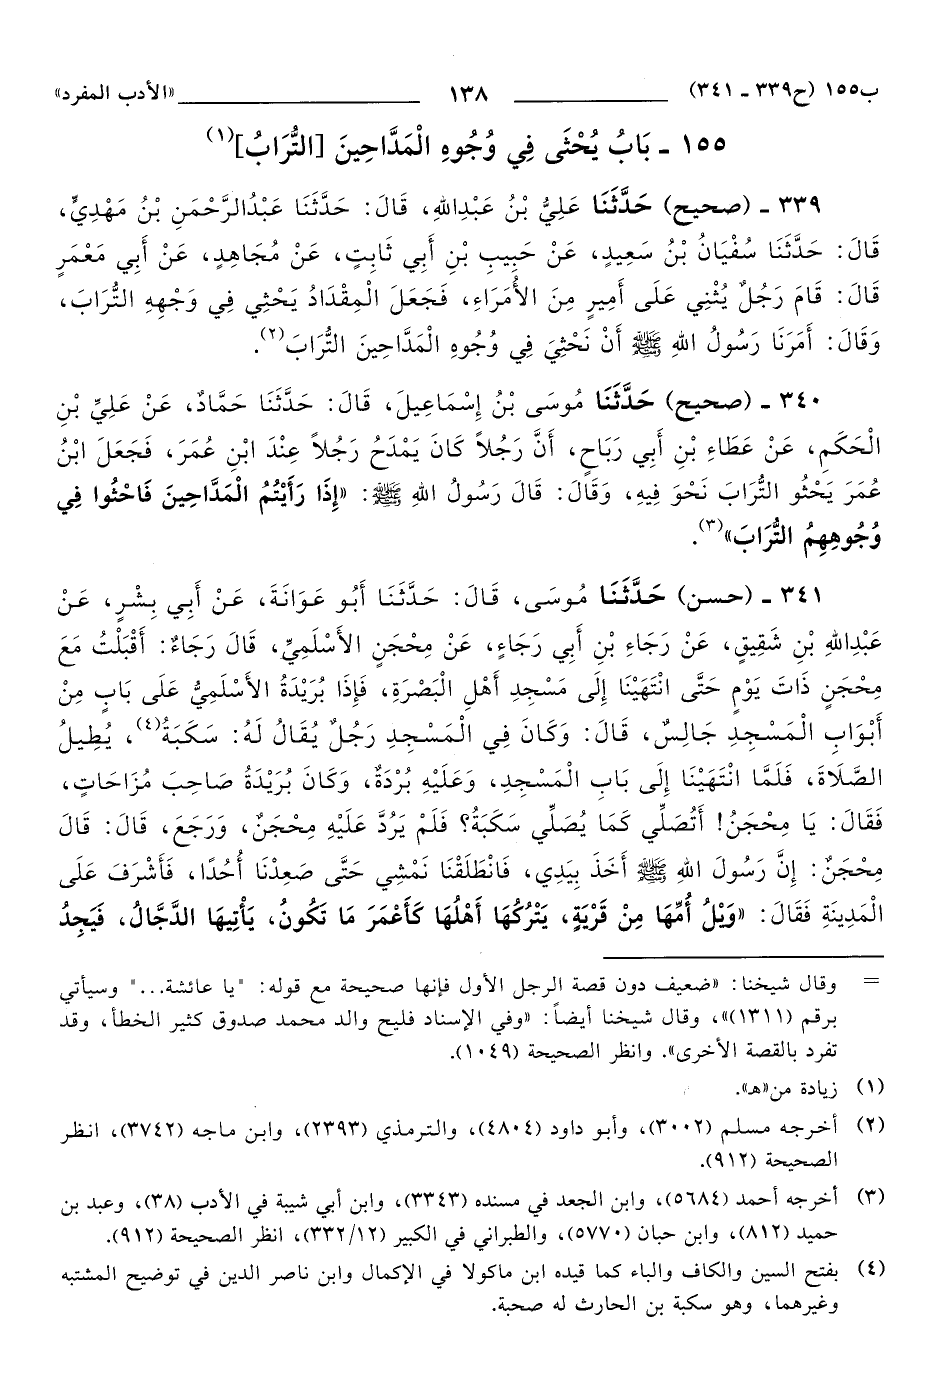 ب١٥٥ (ح٣٣٩ ـ ٣٤١) ١٣٨ «الأدب المفرد»
١٥٥ ـ بَابُ يُحْثَى فِي وُجُوهِ الْمَدَّاحِينَ [التُّرَابُ](١)
٣٣٩ ـ (صحيح) حَدَّثَنَا عَلِيُّ بْنُ عَبْدِاللهِ، قَالَ: حَدَّثَنَا عَبْدُالرَّحْمَنِ بْنُ مَهْدِيٍّ،
قَالَ: حَدَّثَنَا سُفْيَانُ بْنُ سَعِيدٍ، عَنْ حَبِيبِ بْنِ أَبِي ثَابِتٍ، عَنْ مُجَاهِدٍ، عَنْ أَبِي مَعْمَرٍ
قَالَ: قَامَ رَجُلٌ يُثْنِي عَلَى أَمِيرٍ مِنَ الأُمَرَاءِ، فَجَعَلَ الْمِقْدَادُ يَحْثِي فِي وَجْهِهِ التُّرَابَ،
وَقَالَ: أَمَرَنَا رَسُولُ اللهِ ﷺ أَنْ نَحْثِيَ فِي وُجُوهِ الْمَدَّاحِينَ التُّرَابَ(٢).
٣٤٠ ـ (صحيح) حَدَّثَنَا مُوسَى بْنُ إِسْمَاعِيلَ، قَالَ: حَدَّثَنَا حَمَّادٌ، عَنْ عَلِيِّ بْنِ
الْحَكَمِ، عَنْ عَطَاءِ بْنِ أَبِي رَبَاحٍ، أَنَّ رَجُلاً كَانَ يَمْدَحُ رَجُلاً عِنْدَ ابْنِ عُمَرَ، فَجَعَلَ ابْنُ
عُمَرَ يَحْثُو التُّرَابَ نَحْوَ فِيهِ، وَقَالَ: قَالَ رَسُولُ اللهِ ﷺ: «إِذَا رَأَيْتُمُ الْمَدَّاحِينَ فَاحْثُوا فِي
وُجُوهِهِمُ التُّرَابَ»(٣).
٣٤١ ـ (حسن) حَدَّثَنَا مُوسَى، قَالَ: حَدَّثَنَا أَبُو عَوَانَةَ، عَنْ أَبِي بِشْرٍ، عَنْ
عَبْدِاللهِ بْنِ شَقِيقٍ، عَنْ رَجَاءِ بْنِ أَبِي رَجَاءٍ، عَنْ مِحْجَنٍ الأَسْلَمِيِّ، قَالَ رَجَاءٌ: أَقْبَلْتُ مَعَ
مِحْجَنٍ ذَاتَ يَوْمٍ حَتَّى انْتَهَيْنَا إِلَى مَسْجِدِ أَهْلِ الْبَصْرَةِ، فَإِذَا بُرَيْدَةُ الأَسْلَمِيُّ عَلَى بَابٍ مِنْ
أَبْوَابِ الْمَسْجِدِ جَالِسٌ، قَالَ: وَكَانَ فِي الْمَسْجِدِ رَجُلٌ يُقَالُ لَهُ: سَكَبَةُ(٤)، يُطِيلُ
الصَّلَاةَ، فَلَمَّا انْتَهَيْنَا إِلَى بَابِ الْمَسْجِدِ، وَعَلَيْهِ بُرْدَةٌ، وَكَانَ بُرَيْدَةُ صَاحِبَ مُزَاحَاتٍ،
فَقَالَ: يَا مِحْجَنُ! أَتُصَلِّي كَمَا يُصَلِّي سَكَبَةُ؟ فَلَمْ يَرُدَّ عَلَيْهِ مِحْجَنٌ، وَرَجَعَ، قَالَ: قَالَ
مِحْجَنٌ: إِنَّ رَسُولَ اللهِ ﷺ أَخَذَ بِيَدِي، فَانْطَلَقْنَا نَمْشِي حَتَّى صَعِدْنَا أُحُدًا، فَأَشْرَفَ عَلَى
الْمَدِينَةِ فَقَالَ: «وَيْلُ أُمِّهَا مِنْ قَرْيَةٍ، يَتْرُكُهَا أَهْلُهَا كَأَعْمَرَ مَا تَكُونُ، يَأْتِيهَا الدَّجَّالُ، فَيَجِدُ
= وقال شيخنا: «ضعيف دون قصة الرجل الأول فإنها صحيحة مع قوله: "يا عائشة..." وسيأتي
برقم (١٣١١)»، وقال شيخنا أيضاً: «وفي الإسناد فليح والد محمد صدوق كثير الخطأ، وقد
تفرد بالقصة الأخرى». وانظر الصحيحة (١٠٤٩).
(١) زيادة من«هـ».
(٢) أخرجه مسلم (٣٠٠٢)، وأبو داود (٤٨٠٤)، والترمذي (٢٣٩٣)، وابن ماجه (٣٧٤٢)، انظر
الصحيحة (٩١٢).
(٣) أخرجه أحمد (٥٦٨٤)، وابن الجعد في مسنده (٣٣٤٣)، وابن أبي شيبة في الأدب (٣٨)، وعبد بن
حميد (٨١٢)، وابن حبان (٥٧٧٠)، والطبراني في الكبير (٣٣٢/١٢)، انظر الصحيحة (٩١٢).
(٤) بفتح السين والكاف والباء كما قيده ابن ماكولا في الإكمال وابن ناصر الدين في توضيح المشتبه
وغيرهما، وهو سكبة بن الحارث له صحبة.